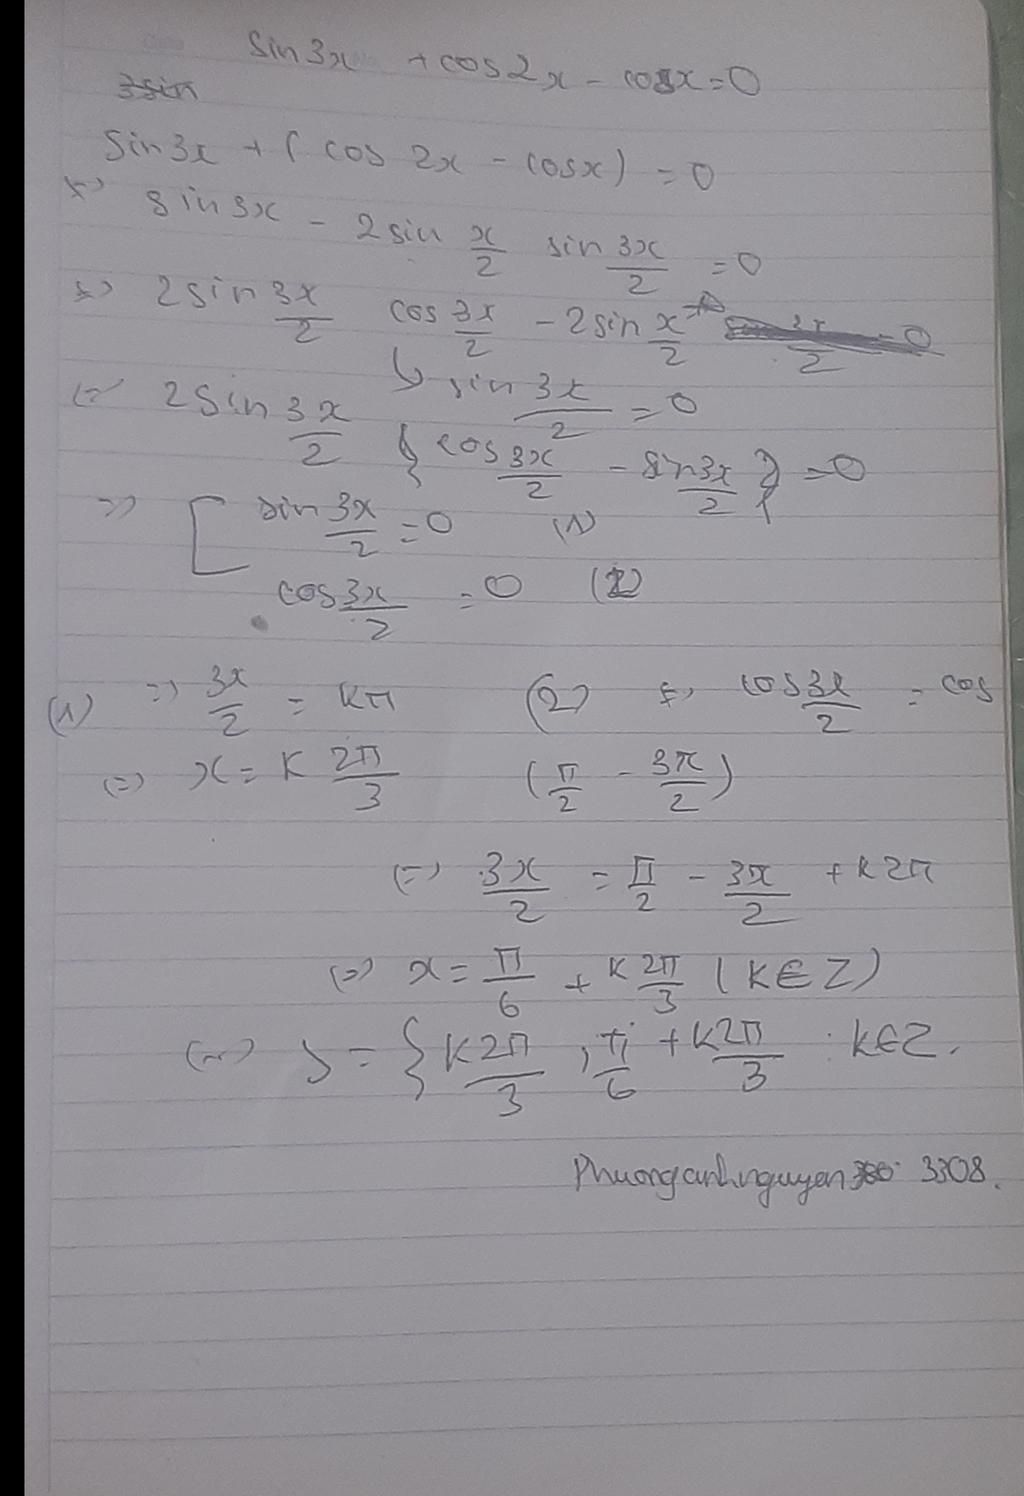 sin3x + cos2x - cosx = 0
3sin
sin3x + ( cos 2x - cosx) = 0
(=) sin3x - 2sin x/2 sin 3x/2 = 0
(=) 2sin 3x/2 cos 3x/2 - 2sin x/2
↳ sin 3x/2 = 0
(=) 2sin 3x/2 { cos 3x/2 - sin 3x/2 } = 0
=> [ sin 3x/2 = 0 (1)
cos 3x/2 = 0 (2)
(1) => 3x/2 = kπ (2) (=) cos 3x/2 = cos
(=) x = k 2π/3 (π/2 - 3x/2)
(=) 3x/2 = π/2 - 3x/2 + k2π
(=) x = π/6 + k 2π/3 (k∈Z)
S = { k2π/3 ; π/6 + k2π/3 : k∈Z.
Phuonganhnguyen 3308.